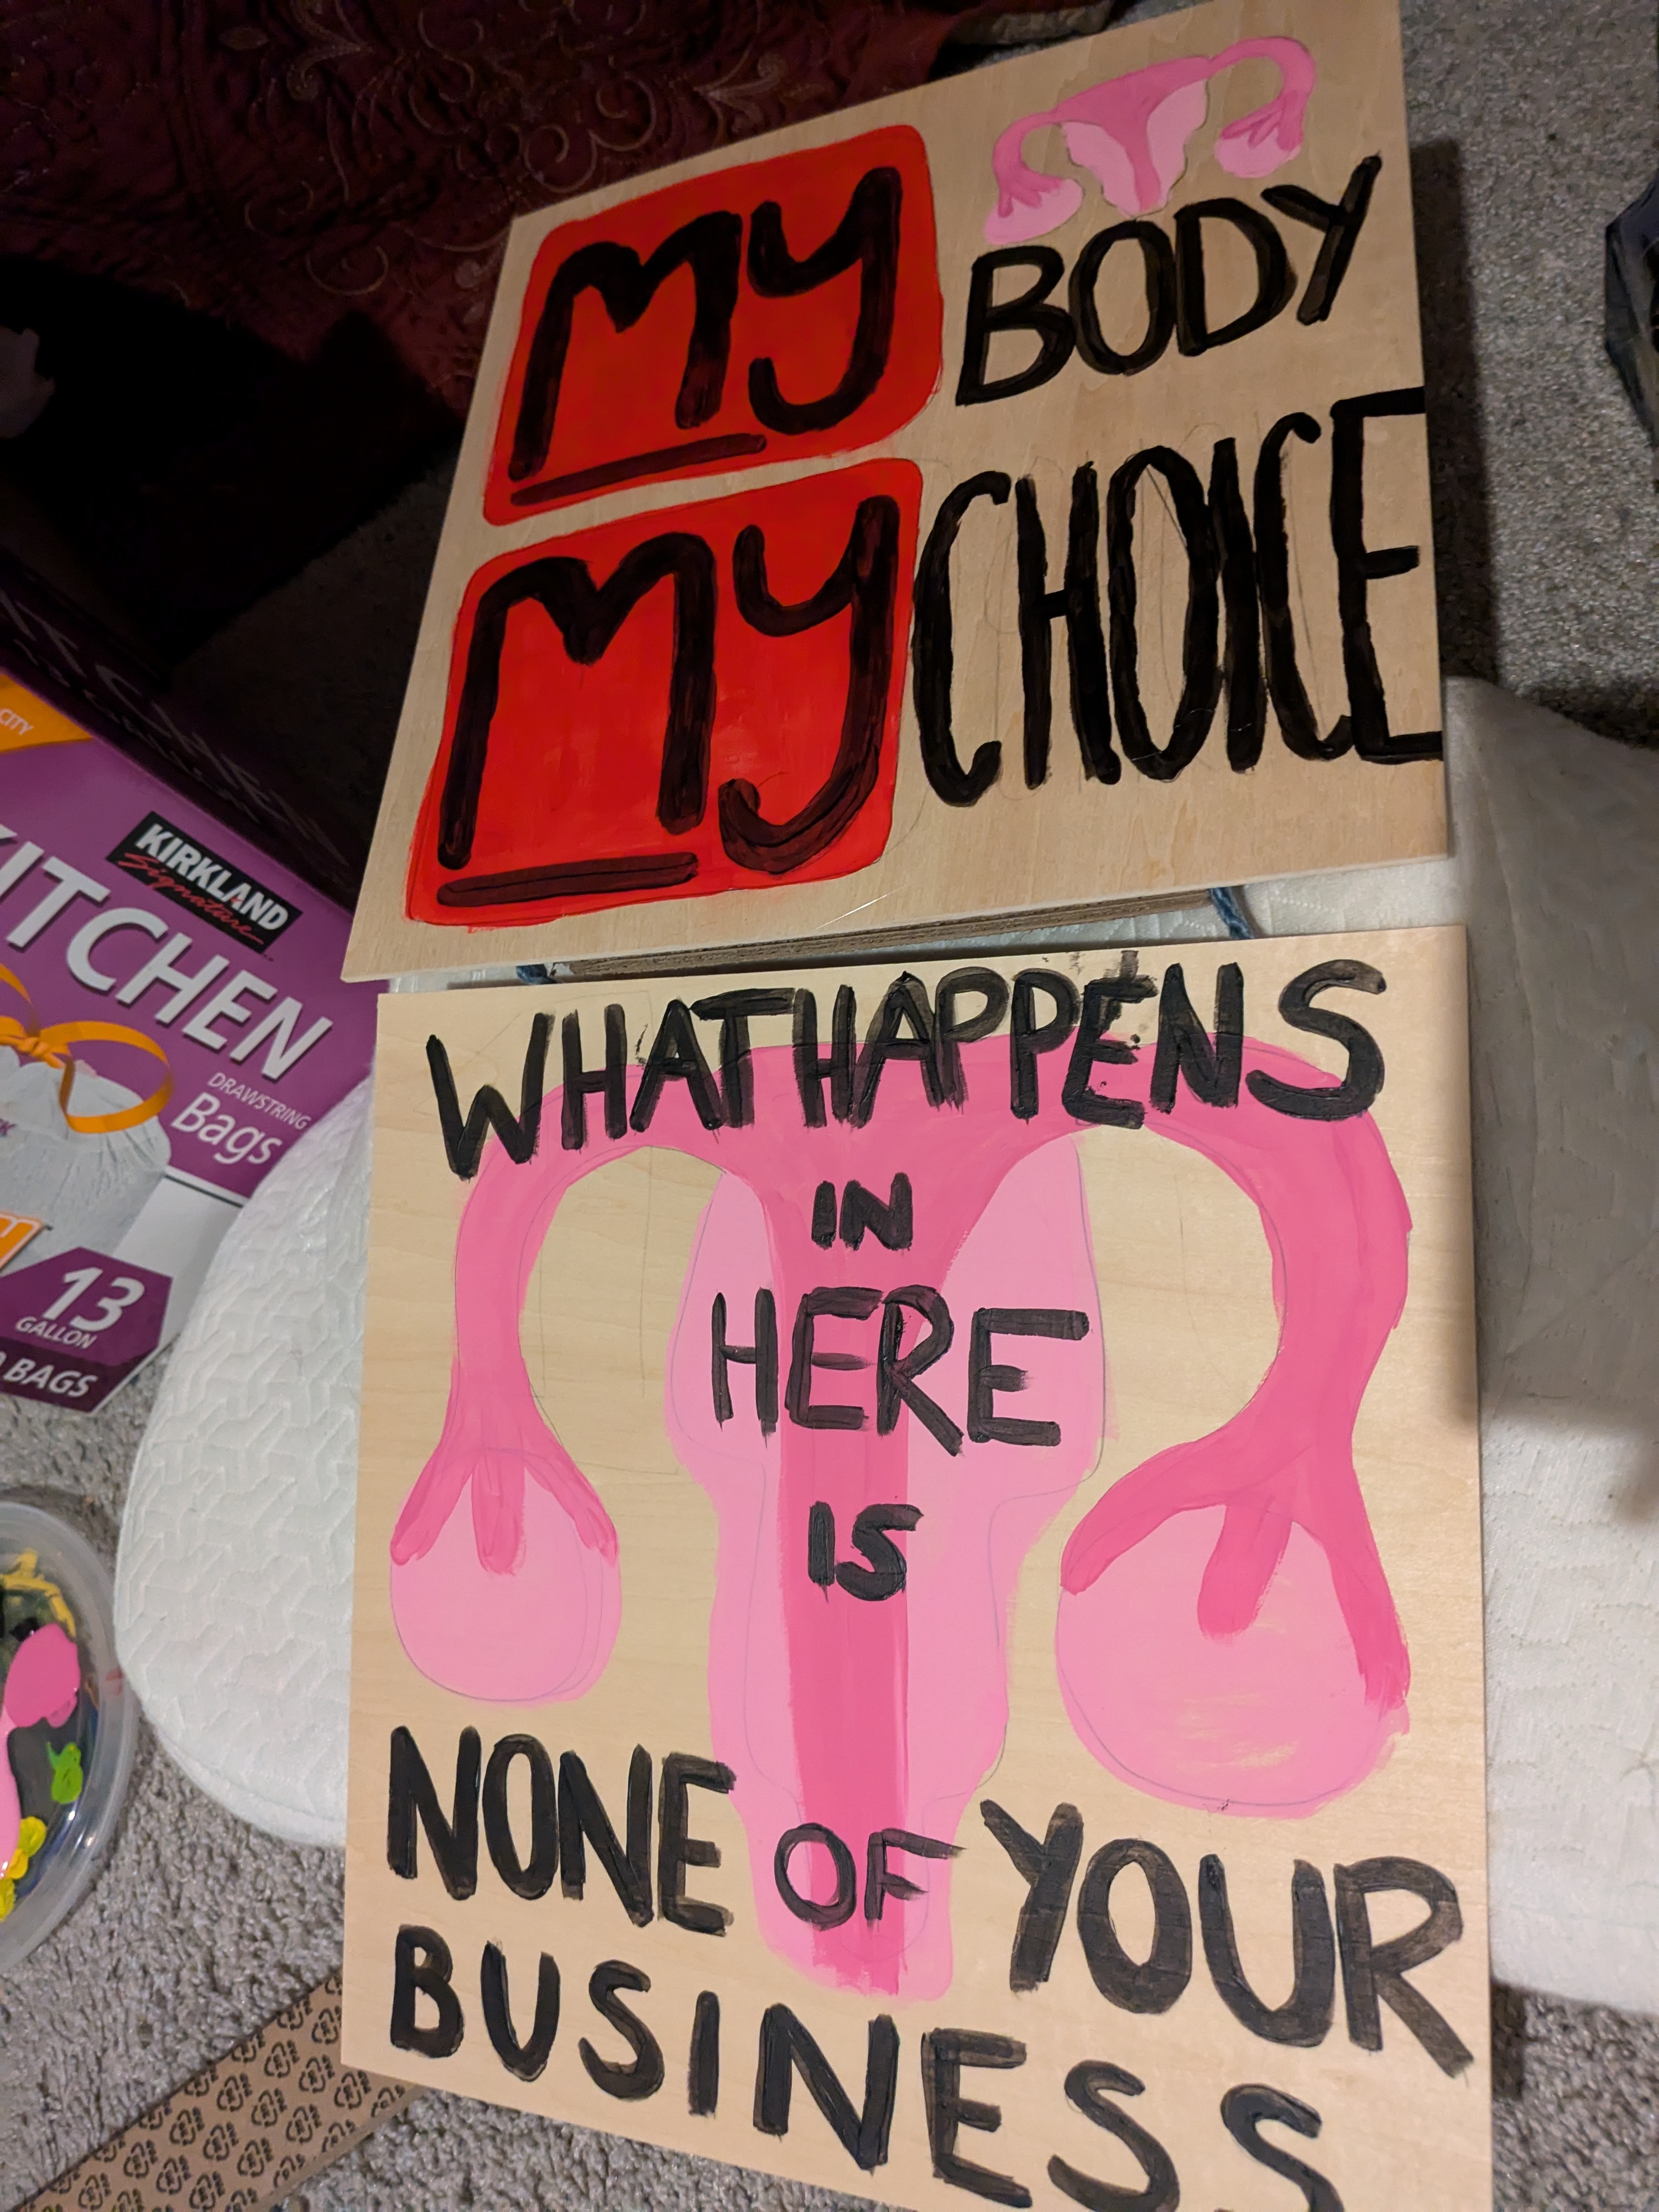 MY BODY
MY CHOICE
WHAT HAPPENS
IN
HERE
IS
NONE OF YOUR
BUSINESS
KIRKLAND
Signature
KITCHEN
DRAWSTRING
Bags
13
GALLON
BAGS